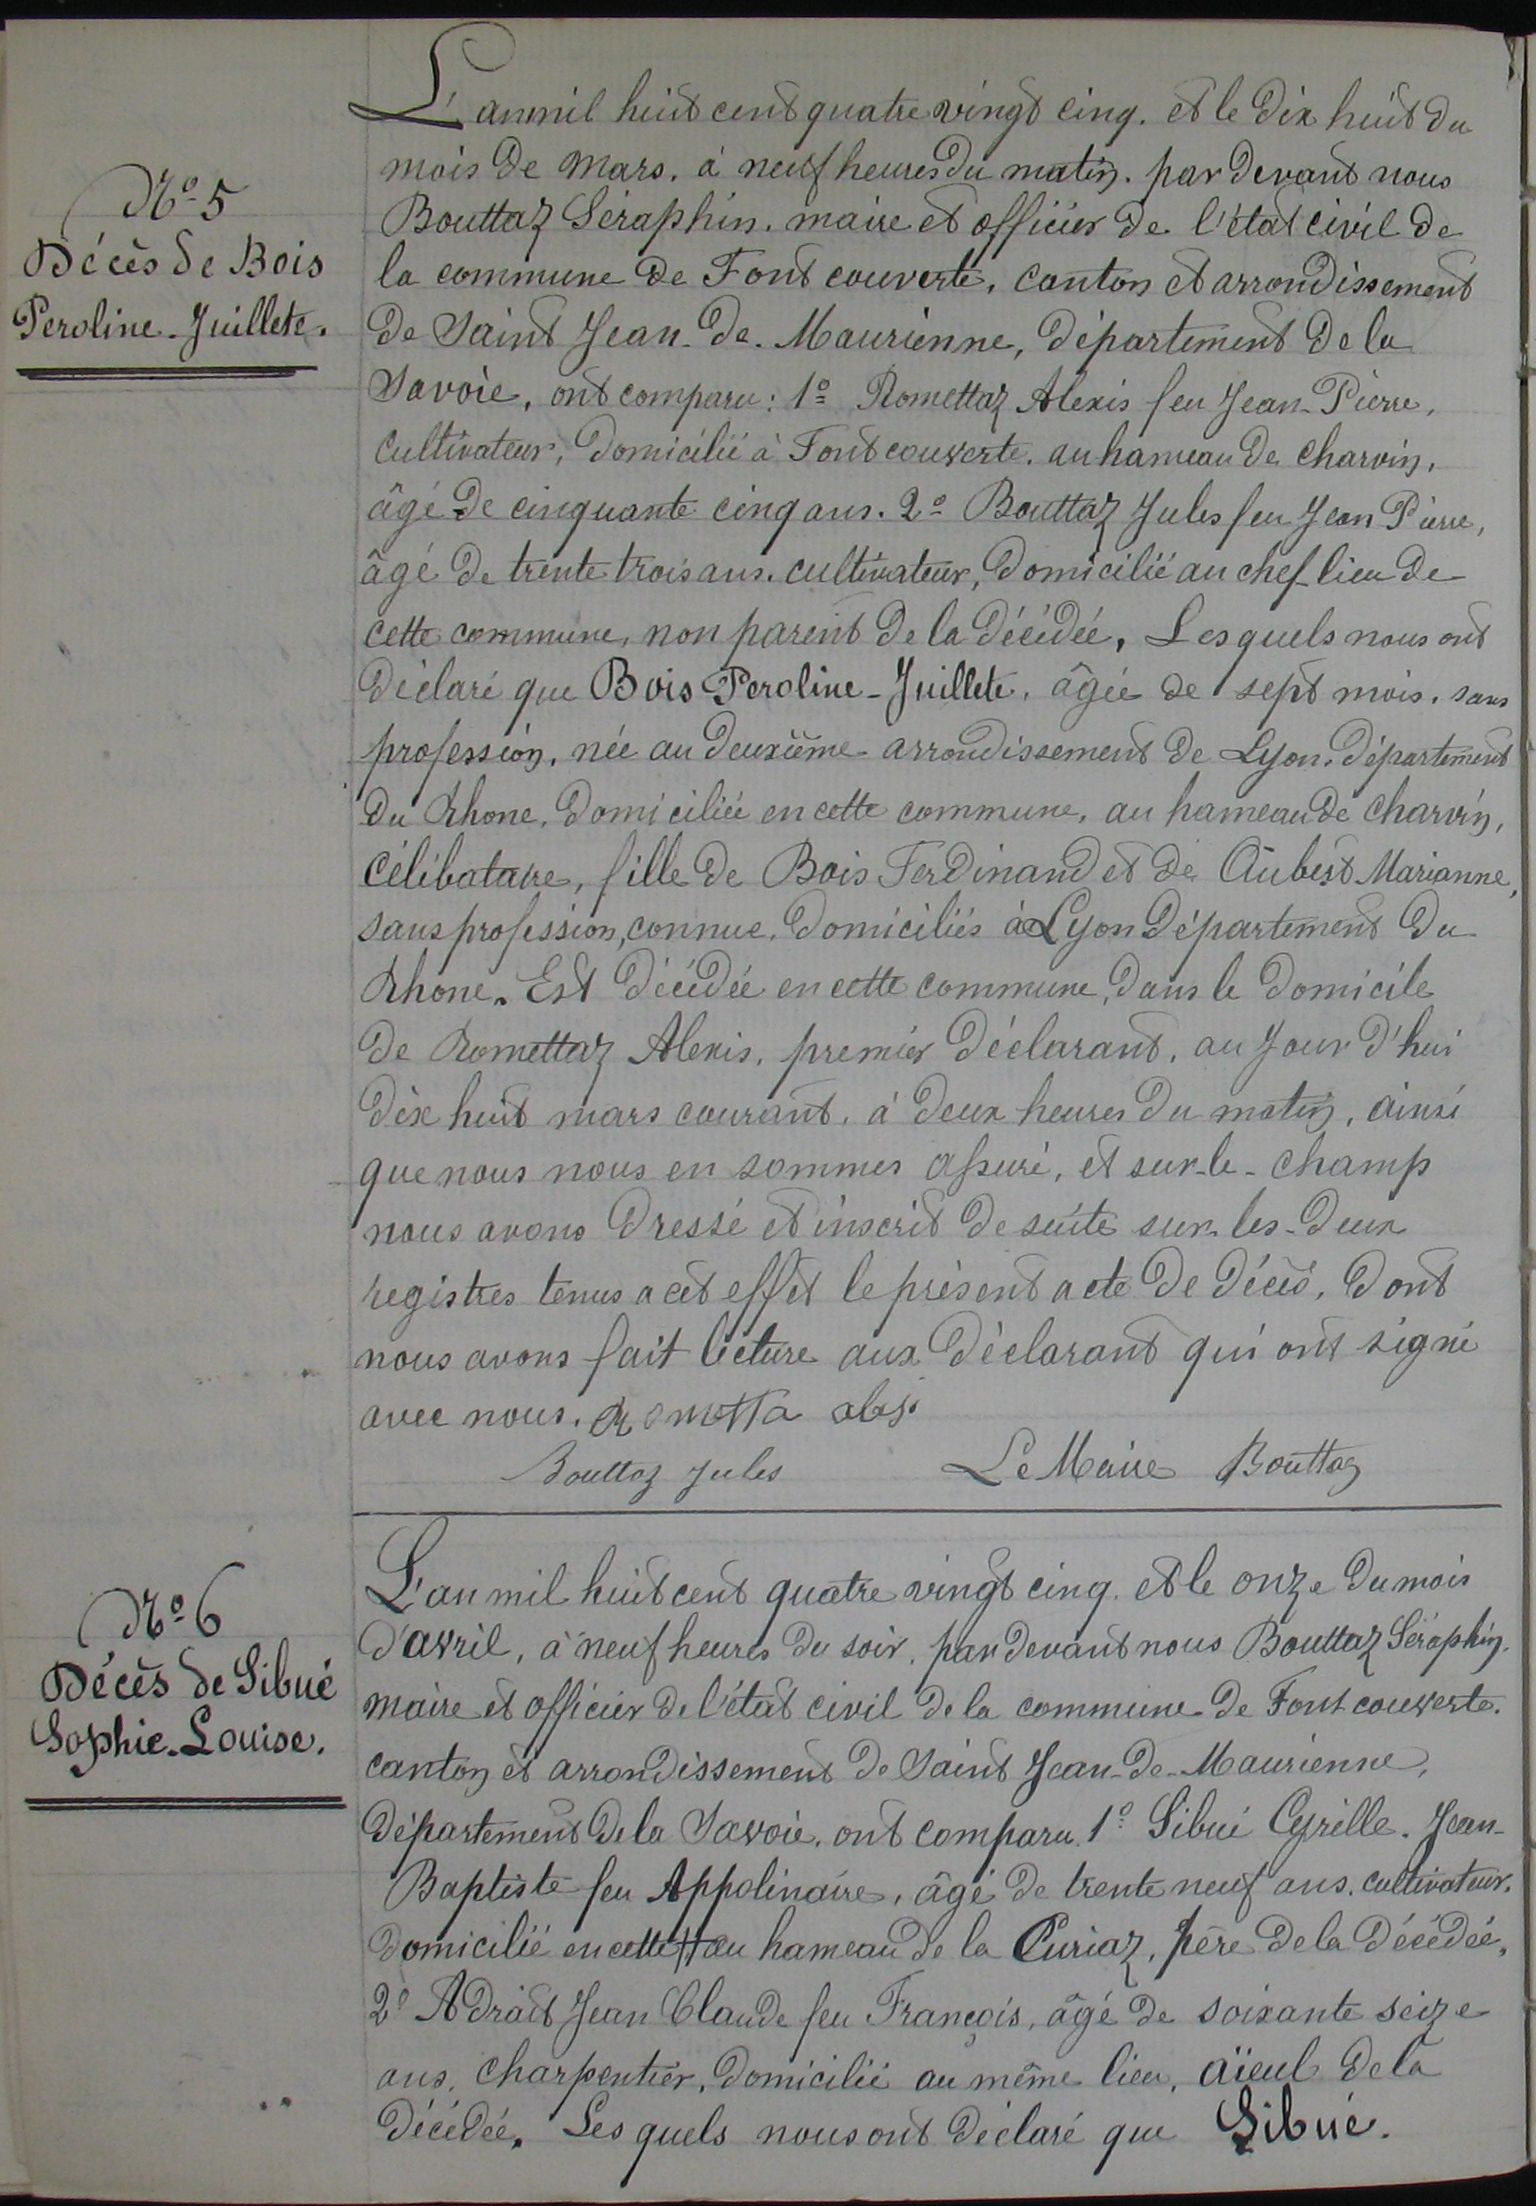 N.o 5
Décès de Bois
Peroline-Juillete.
L'an mil huit cent quatre vingt cinq. et le dix huit du
mois de mars. à neuf heures du matin. par devant nous
Bouttaz Séraphin. maire et officier de l'état civil de
la commune de Font couverte, canton et arrondissement
de Saint Jean-de-Maurienne, département de la
Savoie, ont comparu: 1o Romettaz Alexis feu Jean-Pierre,
cultivateur, domicilié à Font couverte. au hameau de charvin,
âgé de cinquante cinq ans. 2o Bouttaz Jules feu Jean Pierre,
âgé de trente trois ans. cultivateur, domicilié au chef-lieu de
cette commune, non parent de la décédée, Les quels nous ont
déclaré que Bois Peroline-Juillete, âgée de sept mois, sans
profession, née au deuxième arrondissement de Lyon. département
du Rhone, domiciliée en cette commune, au hameau de charvin,
célibataire, fille de Bois Ferdinand et de Aubert Marianne,
sans profession, connue, domiciliés à Lyon département du
Rhone. Est décédée en cette commune, dans le domicile
de Romettaz Alexis, premier déclarant, au Jour d'hui
dix huit mars courant, à deux heures du matin, ainsi
que nous nous en sommes assuré, et sur-le-champ
nous avons dressé et inscrit de suite sur-les-deux
registres tenus a cet effet le présent acte de décès, dont
nous avons fait lecture aux déclarant qui ont signé
avec nous. Rometta
Bouttaz Jules Le Maire Bouttaz
N.o 6
Décès de Sibué
Sophie-Louise.
L'an mil huit cent quatre vingt cinq. et le onze du mois
d'avril, à neuf heures du soir, par devant nous Bouttaz Séraphin.
maire et officier de l'état civil de la commune de Font couverte.
canton et arrondissement de Saint Jean-de-Maurienne,
département de la Savoie, ont comparu. 1o Sibué Cyrille. Jean-
Baptiste feu Appolinaire, âgé de trente neuf ans. cultivateur.
domicilié en cette # au hameau de la Curiaz, père de la décédée,
2o Adrait Jean Claude feu François, âgé de soixante seize
ans, charpentier, domicilié au même lieu, aïeul de la
décédée. Les quels nous ont déclaré que Sibué.